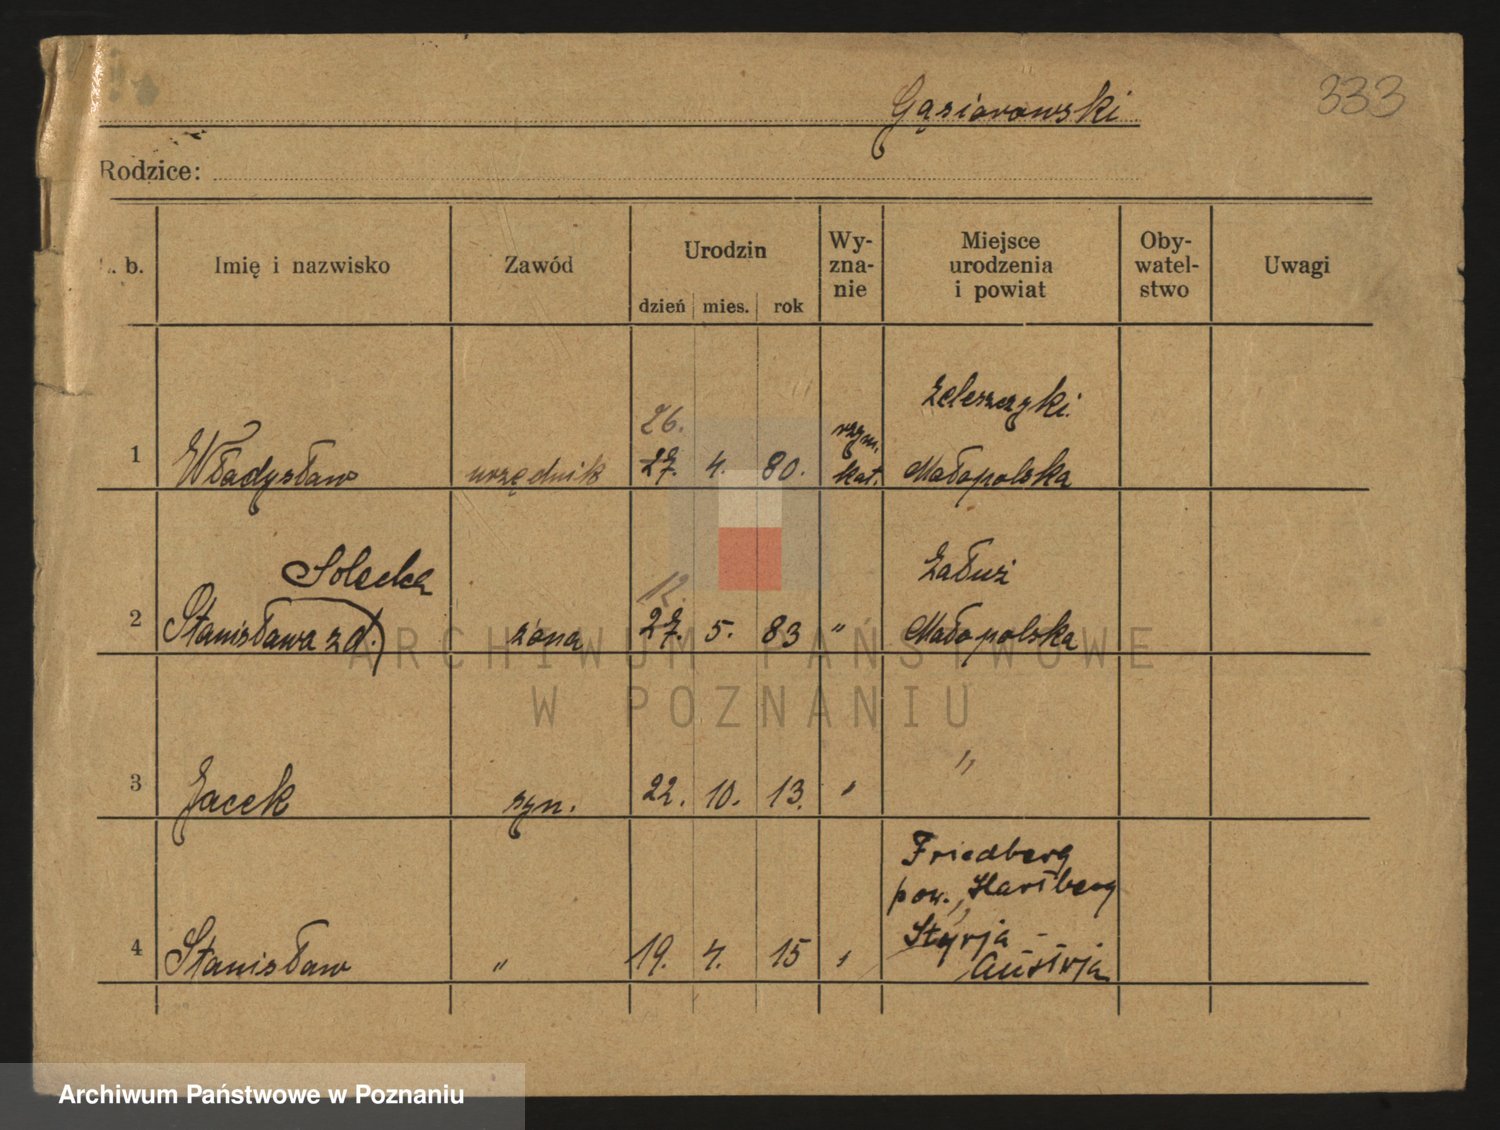 333
Gąsiorowski
Rodzice:
L. b. Imię i nazwisko Zawód Urodzin dzień mies. rok Wy-zna-nie Miejsce urodzenia i powiat Oby-watel-stwo Uwagi
Zeleszczyki
26. rzym.
1 Władysław urzędnik 27. 4. 80. kat. Małopolska
Solecka 12. Załuż
2 Stanisława z d. żona 27. 5. 83 " Małopolska
3 Jacek syn. 22. 10. 13. " "
Friedberg
pow. Hartberg
Styrja -
4 Stanisław " 19. 4. 15 " Austrja
ARCHIWUM PAŃSTWOWE
W POZNANIU
Archiwum Państwowe w Poznaniu